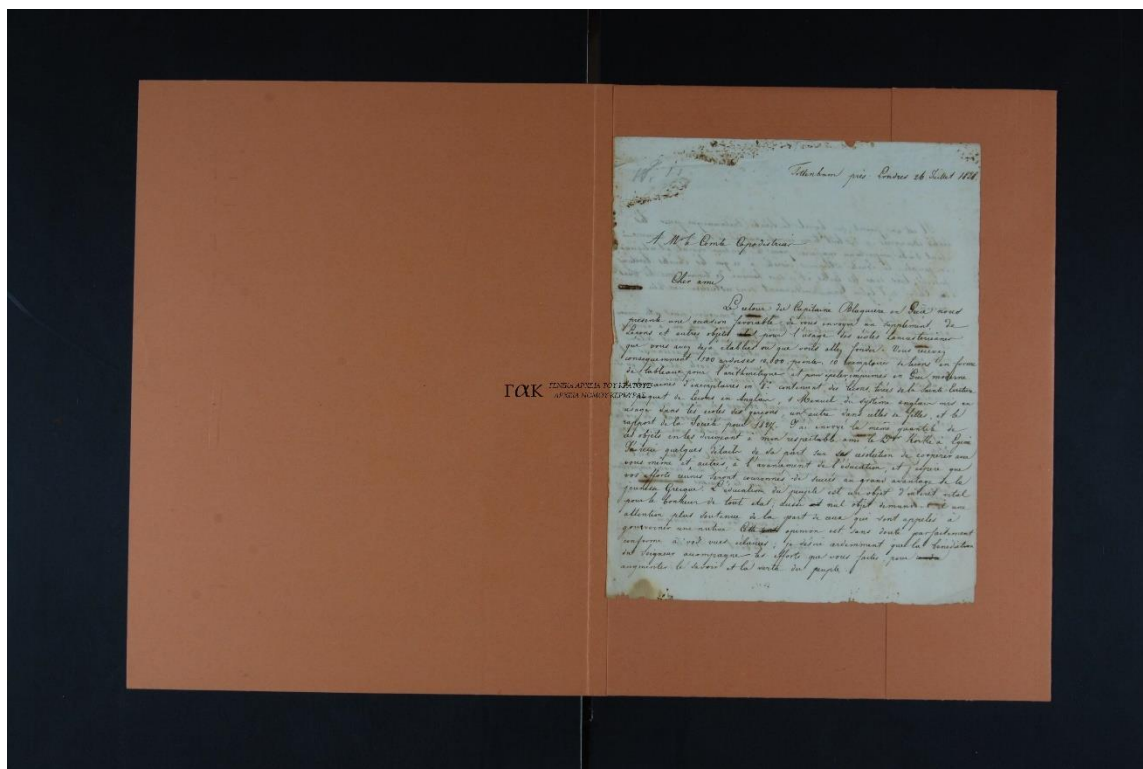 Tottenham près Londres 26 Juillet 1828.
A Mr le Comte Capodistrias
Cher ami
Le retour du Capitaine Blaquiere en Grèce nous
présente une occasion favorable de vous envoyer un supplement de
Leçons et autres objets pour l'usage des écoles Lancasteriennes
que vous avez déjà établies ou que vous allez fonder. Vous recevrez
consequemment 1500 ardoises 12,000 10 exemplaires de leçons en forme
de tableaux pour l'arithmetique et pour epeler imprimés en Grec moderne
d'exemplaires en contenant des leçons tirées de la Sainte Ecriture
paquet de Leçons en Anglais, Manuel du système anglais mis en
usage dans les écoles des garçons, un autre dans celles de filles, et le
rapport de la Société pour 1827. J'ai envoyé la même quantité de
ces objets en les à mon respectable ami le
quelques détails de sa part sur sa resolution de coopérer avec
vous même et autres, à l'avancement de l'éducation, et j'espère que
vos efforts reunis seront couronnés de succès au grand avantage de la
jeunesse Grecque. L'éducation du peuple est un objet d'intérêt vital
pour le bonheur de tout état, aussi nul objet demande une
attention plus soutenue de la part de ceux qui sont appelés à
gouverner une nation. Cette opinion est sans doute parfaitement
conforme à vos vues éclairées; je désire ardemment que la benediction
du Seigneur accompagne les efforts que vous faites, pour
augmenter le savoir et la vertu du peuple.
Γακ ΓΕΝΙΚΑ ΑΡΧΕΙΑ ΤΟΥ ΚΡΑΤΟΥΣ
ΑΡΧΕΙΑ ΝΟΜΟΥ ΚΕΡΚΥΡΑΣ